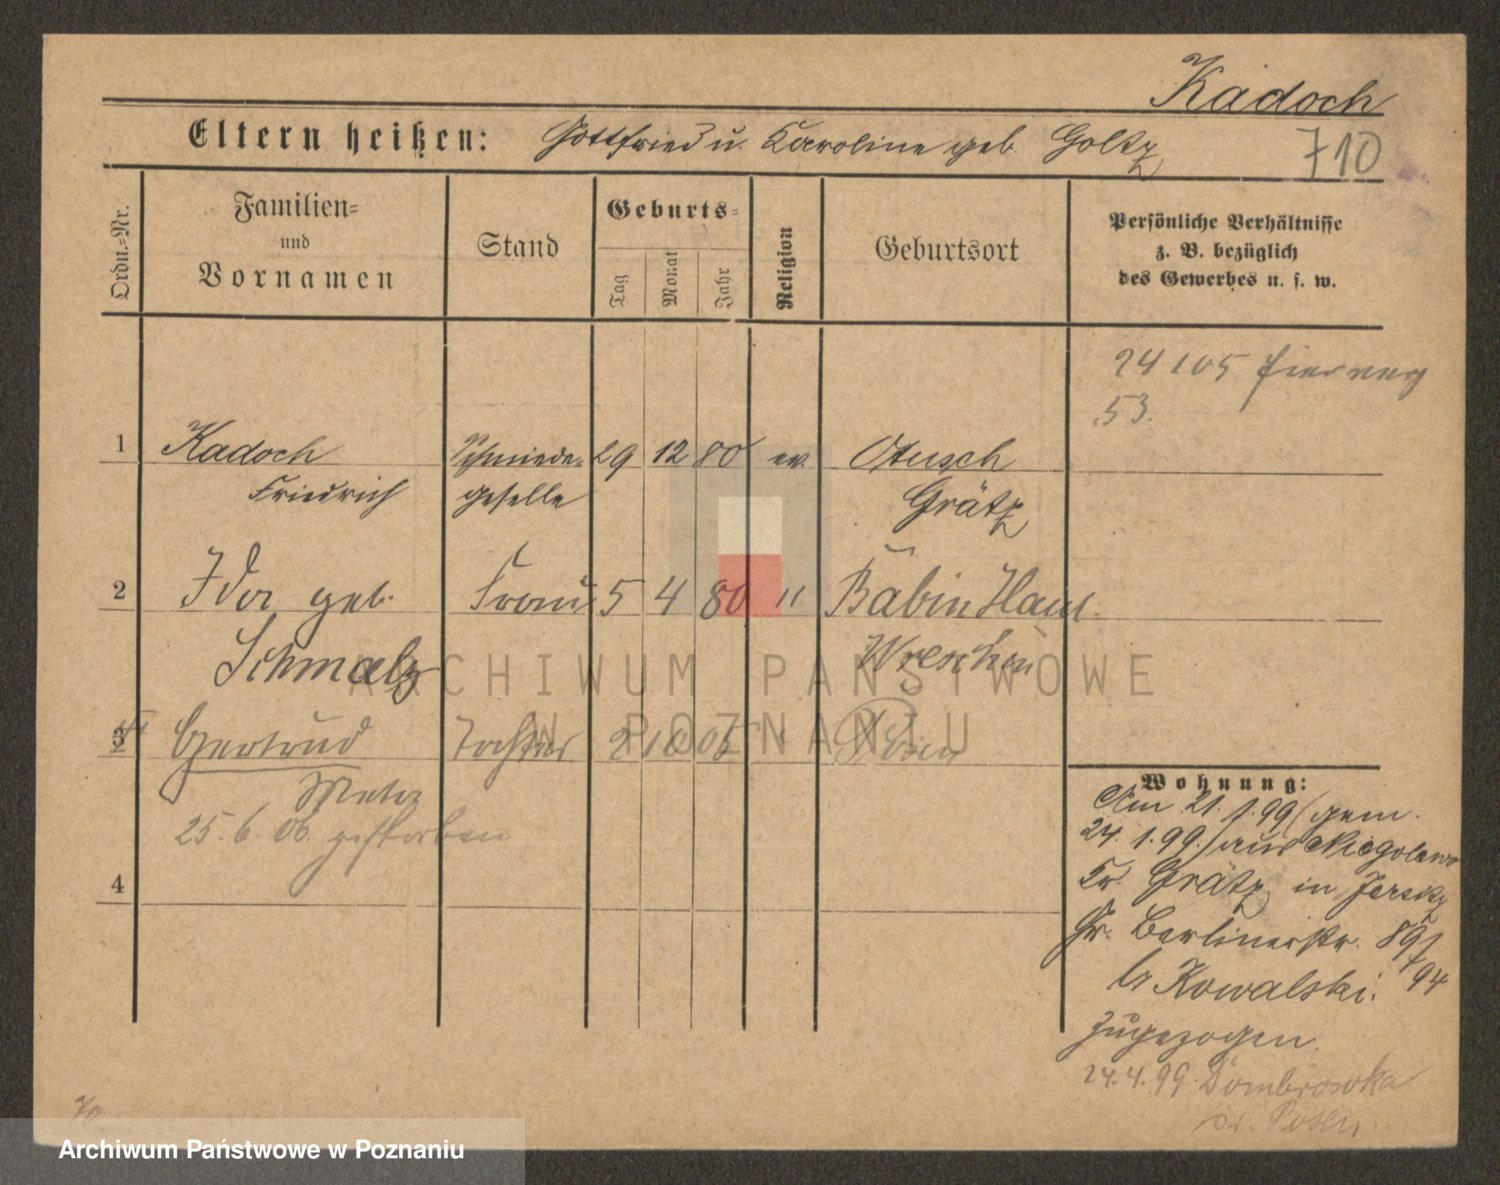 Kadoch
Eltern heißen: Gottfried u. Karoline geb. Goltz
710
Ordn.=Nr.
Familien=
und
Vornamen
Stand
Geburts=
Tag
Monat
Jahr
Religion
Geburtsort
Persönliche Verhältnisse
z. B. bezüglich
des Gewerbes u. s. w.
24 1 05
53.
1 Kadoch Schmiede= 29 12 80 ev. Otusch
Friedrich geselle Grätz
2 Ida geb. Frau 5 4 80 " Babin Haul.
Schmalz Wreschen
3 Gertrud Tochter 2 10 05 Posen
Meta
25. 6. 06. gestorben
4
Wohnung:
Am 21. 1. 99 (gem.
24. 1. 99.) aus Niegolewo
Kr. Grätz in Jersitz
Gr. Berlinerstr. 89/
94
b/ Kowalski.
zugezogen.
24. 4. 99 Dombrowka
Kr. Posen.
ARCHIWUM PAŃSTWOWE
W POZNANIU
Archiwum Państwowe w Poznaniu